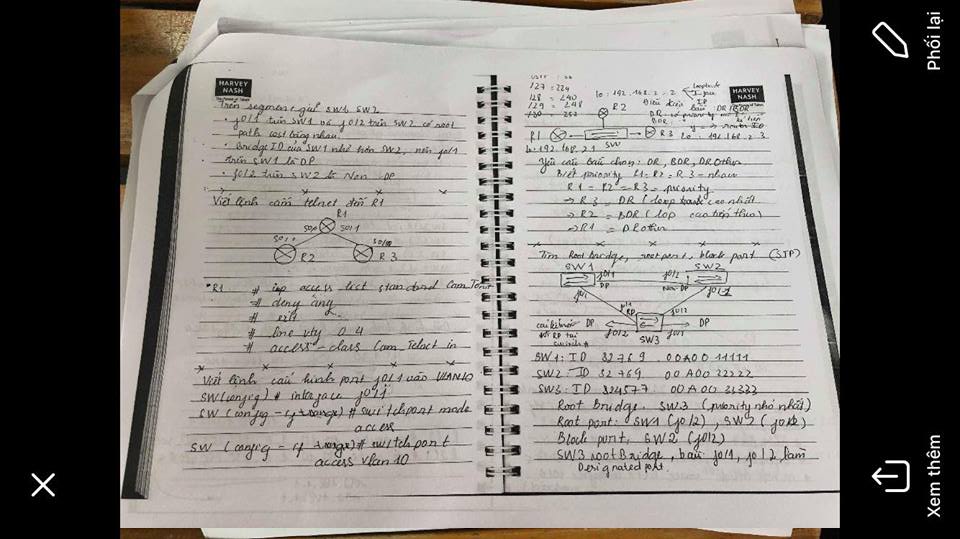 HARVEY
NASH
Trên segment giữa SW1, SW2
• f0/1 trên SW1 và f0/2 trên SW2 có root
path cost bằng nhau.
• Bridge ID của SW1 nhỏ hơn SW2, nên f0/1
trên SW1 là DP
• f0/2 trên SW2 là Non-DP
Viết lệnh cấm telnet đến R1
R1
s0/0 s0/1
R2 R3
• R1 # ip access-list standard Cam_Telnet
# deny any
# exit
# line vty 0 4
# access-class Cam_Telnet in
Viết lệnh cấu hình port f0/1 vào VLAN10
SW(config) # interface f0/1
SW (config-if-range) # switchport mode
access
SW (config-if-range) # switchport
access vlan 10
HARVEY
NASH
127 = 224
128 = 240
129 = 248
130 = 252
lo: 192.168.2.2
Loopback
IP
R2
Điều kiện bầu DR/BDR
R1 SW R3 lo: 192.168.2.3
lo: 192.168.2.1
Yêu cầu bầu chọn: DR, BDR, DROther
Biết priority R1 = R2 = R3 = nhau
R1 = R2 = R3 = priority
→ R3 = DR (loopback cao nhất)
→ R2 = BDR (loop cao tiếp theo)
→ R1 = DROther
Tìm Root Bridge, root port, block port (STP)
SW1 SW2
f0/1 f0/2
DP Non-DP
f0/1 RP f0/2
DP DP
f0/2 SW3 f0/1
SW1: ID 32769 00A00 11111
SW2: ID 32769 00A00 22222
SW3: ID 324577 00A00 33333
Root Bridge: SW3 (priority nhỏ nhất)
Root port: SW1 (f0/2), SW2 (f0/2)
Block port: SW2 (f0/2)
SW3 root Bridge, bầu f0/1, f0/2 làm
Designated port.
Phối lại
Xem thêm